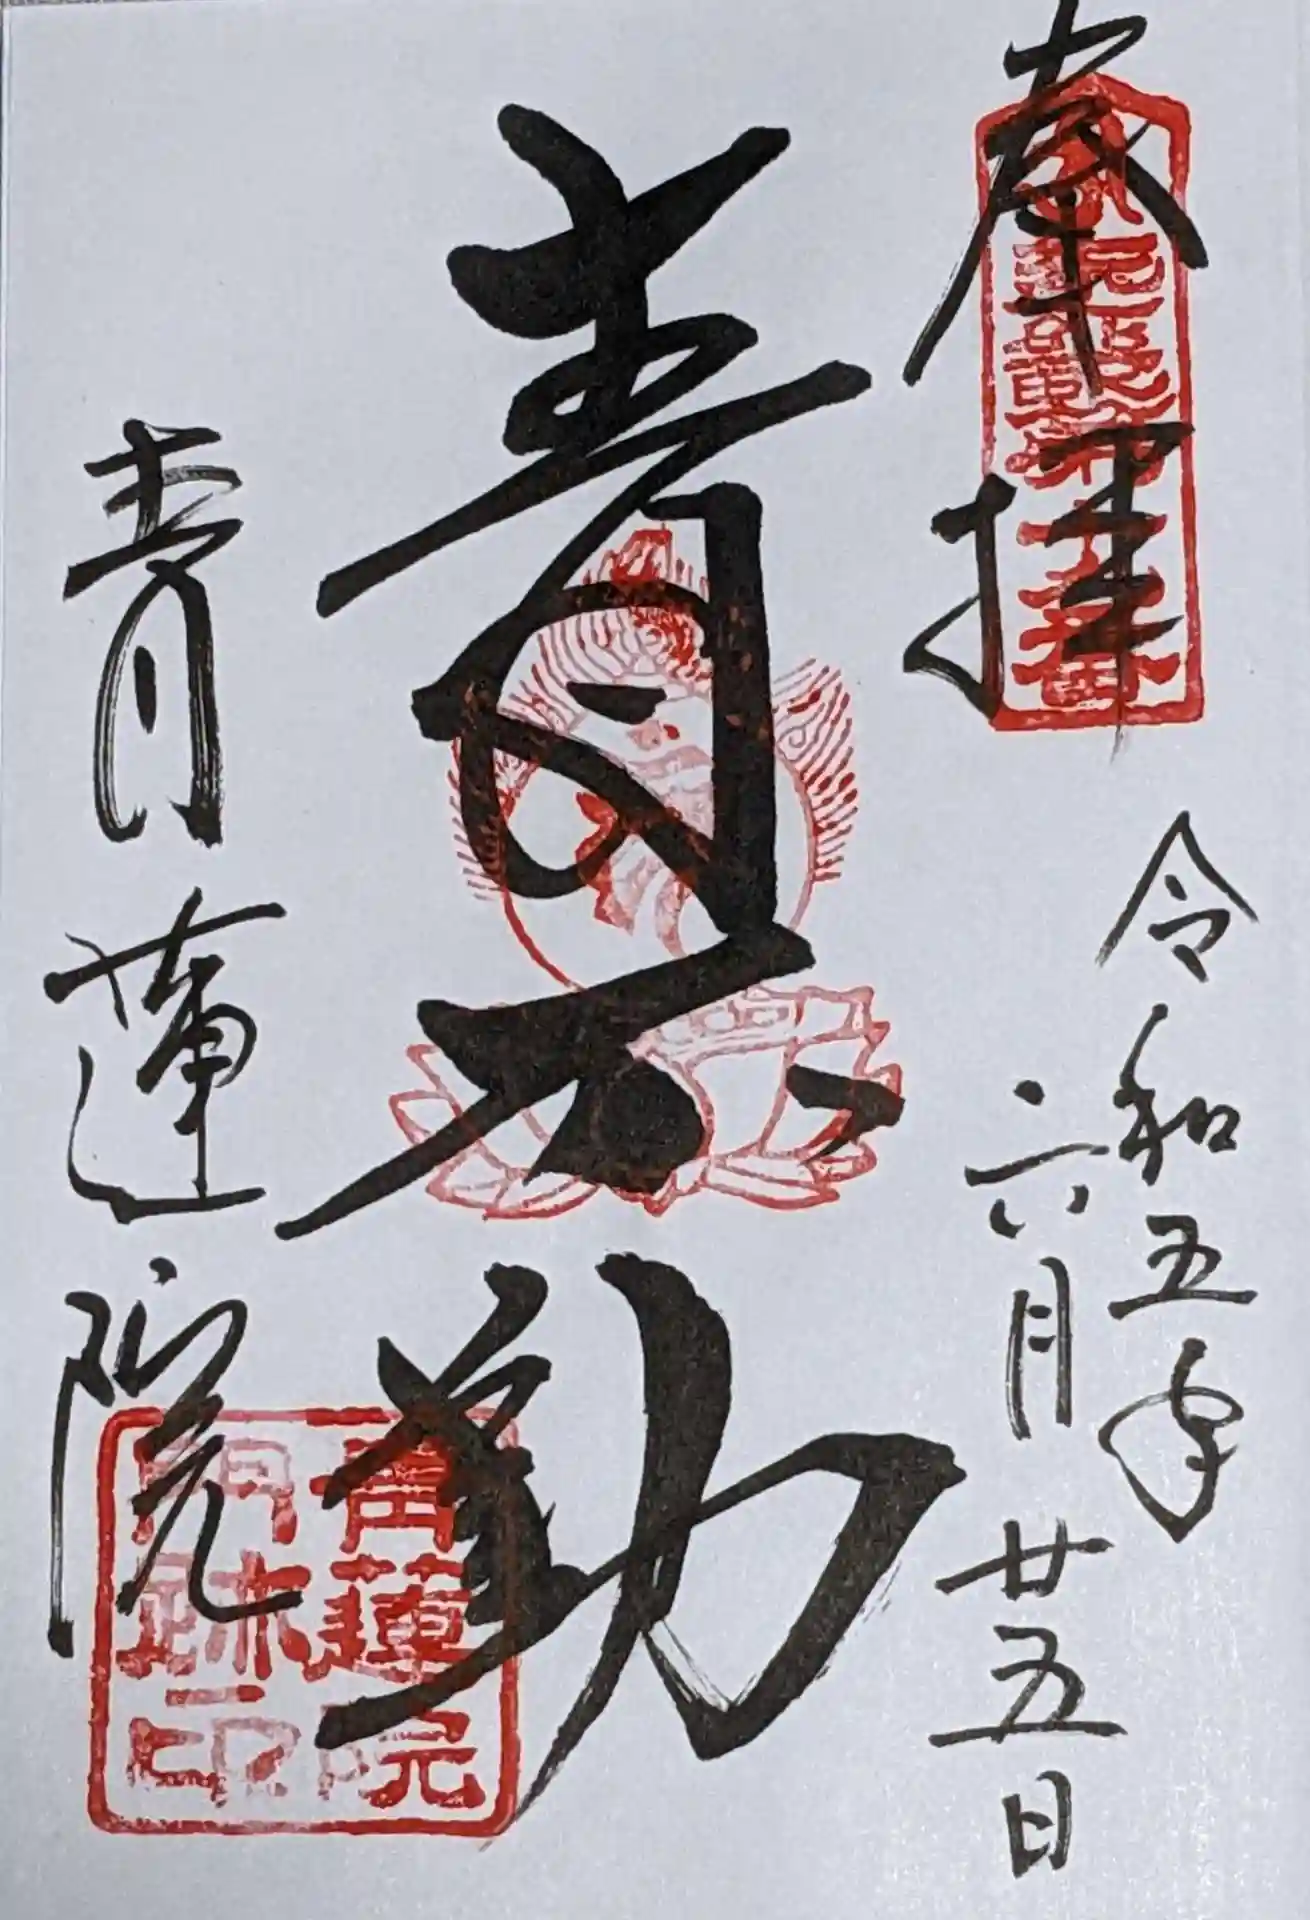 奉拝
令和五年
六月廿五日
青不動
青蓮院
青蓮院
門跡印